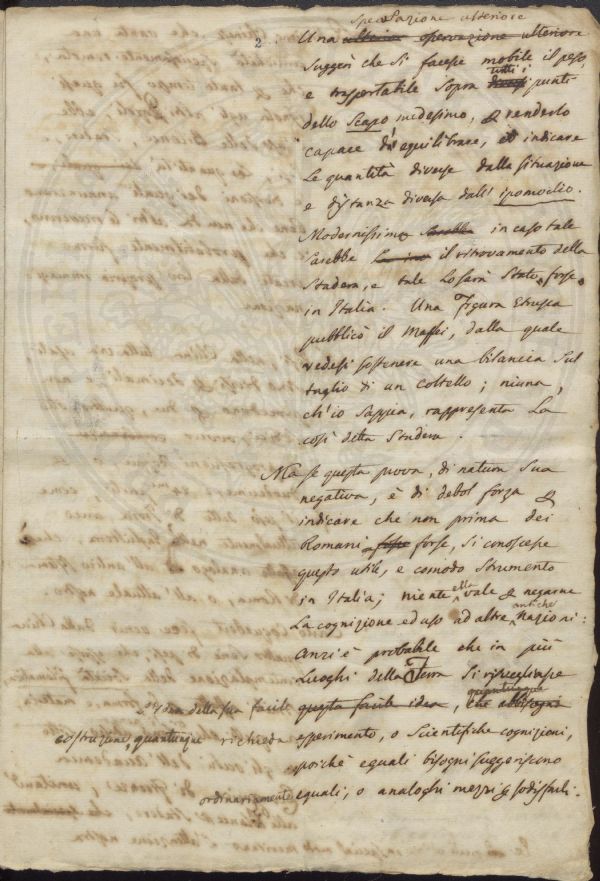 2
Speculazione ulteriore
Una ulteriore osservazione ulteriore
suggerì che si facesse mobile il peso,
e trasportabile sopra diversi tutti i punti
dello Scapo medesimo, & renderlo
capace di equilibrare, ed indicare
Le quantità diverse dalla situazione
e distanza diversa dall' ipomoclio.
Modernissimo sarebbe in caso tale
sarebbe il ritrovamento della
Stadera, e tale lo sarà stato forse
in Italia. Una Figura Etrusca
pubblicò il Maffei, dalla quale
vedesi sostenere una bilancia sul
taglio di un coltello; niuna,
ch'io sappia, rappresenta La
così detta Stadera.
Ma se questa prova, di natura sua
negativa, è di debol forza &
indicare che non prima dei
Romani forse, si conoscesse
questo utile, e comodo strumento
in Italia; niente ella vale & negarne
La cognizione ed uso ad altre antiche Nazioni:
Anzi è probabile che in più
Luoghi della Terra si risvegliasse
questa facile idea, che abbisogni quantunque
L'Idea della sua facile
costruzione quantunque richieda
esperimento, o Scientifiche cognizioni,
poiché eguali bisogni suggeriscono
ordinariamente eguali, o analoghi mezzi & sodisfarli.